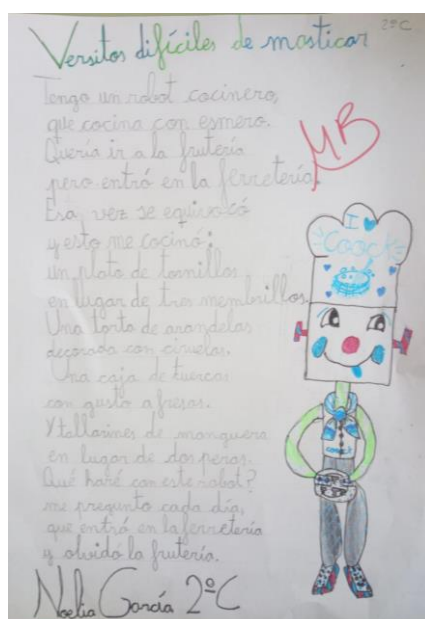 2º C
Versitos difíciles de masticar
Tengo un robot cocinero,
que cocina con esmero.
Quería ir a la frutería
pero entró en la ferretería.
MB
Esa vez se equivocó
y esto me cocinó:
un plato de tornillos
en lugar de tres membrillos.
Una torta de arandelas
decorada con ciruelas.
Una caja de tuercas
con gusto a fresas.
Y tallarines de manguera
en lugar de dos peras.
Qué haré con este robot?
me pregunto cada día,
que entró en la ferretería
y olvidó la frutería.
Noelia García 2º C
I
Coock